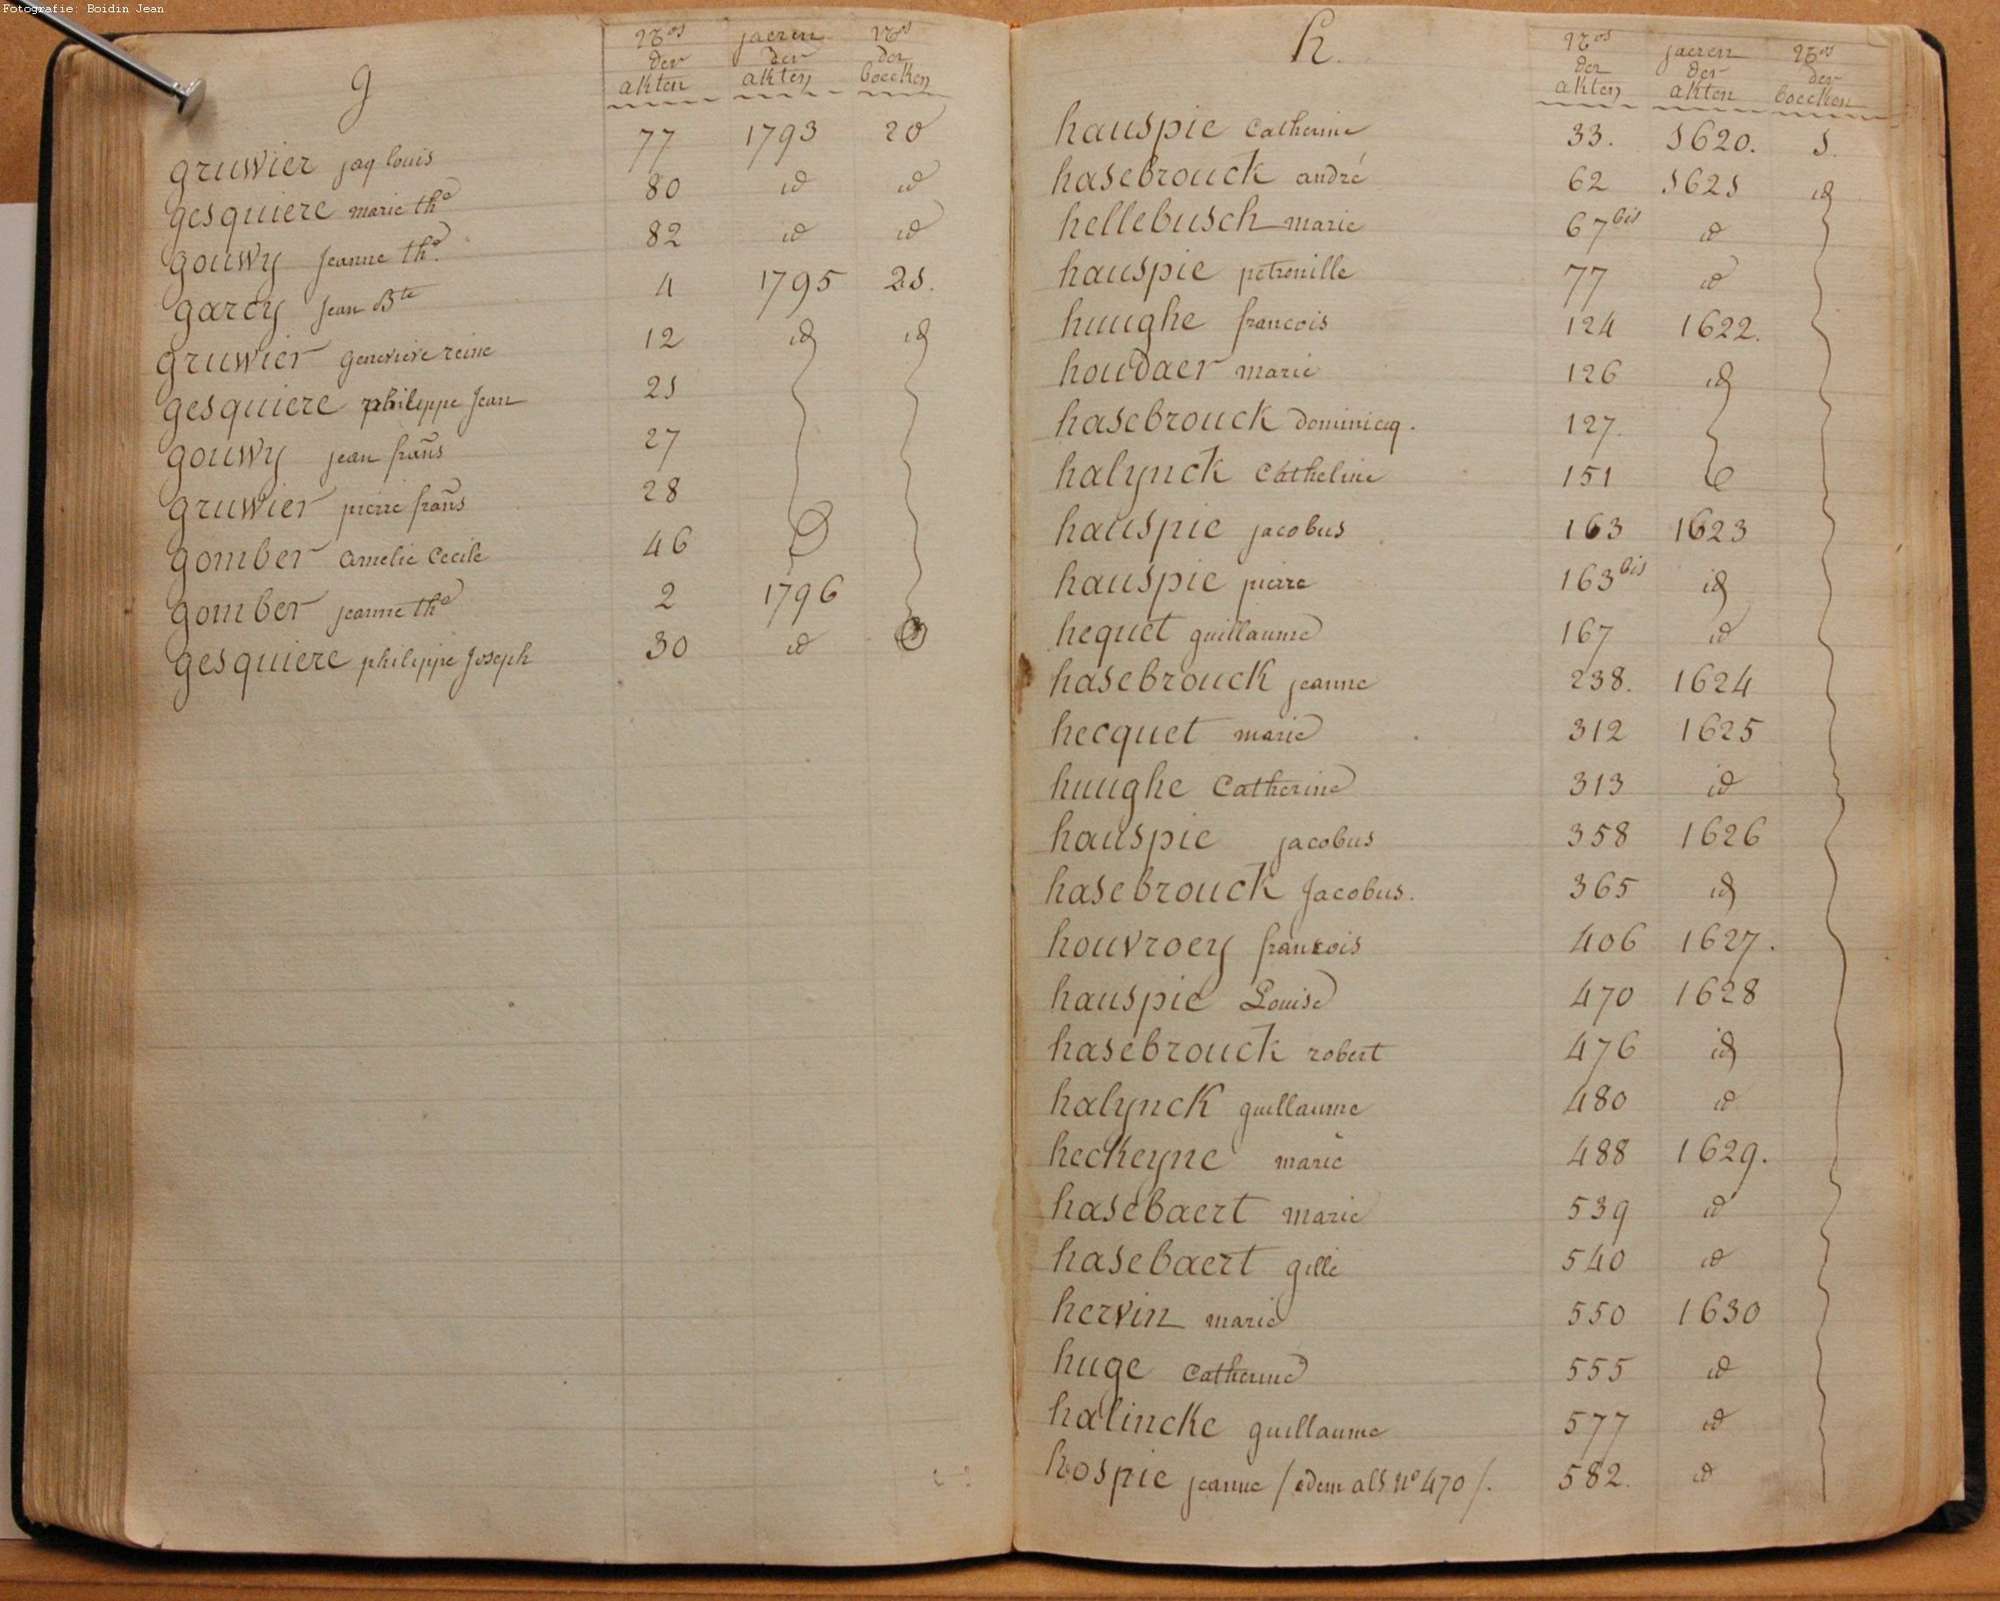 Fotografie: Boidin Jean
g
Nros der akten jaeren der akten Nros der boecken
gruwier jaq louis 77 1793 20
gesquiere marie the 80 id id
gouwy jeanne the. 82 id id
garcy jean Bte 4 1795 21.
gruwier genevieve reine 12 id id
gesquiere philippe jean 21
gouwy jean frans 27
gruwier pierre frans 28
gomber amelie Cecile 46
gomber jeanne the 2 1796
gesquiere philippe joseph 30 id
h.
Nros der akten jaeren der akten Nros der boecken
hauspie Catherine 33. 1620. 1.
hasebrouck andré 62 1621 id
hellebusch marie 67bis id
hauspie petronille 77 id
huughe francois 124 1622.
houdaer marie 126 id
hasebrouck dominicq. 127.
halynck Catheline 151
hauspie jacobus 163 1623
hauspie pierre 163bis id
hequet guillaume 167 id
hasebrouck jeanne 238. 1624
hecquet marie 312 1625
huughe Catherine 313 id
hauspie jacobus 358 1626
hasebrouck Jacobus. 365 id
houvroey francois 406 1627.
hauspie Louise 470 1628
hasebrouck robert 476 id
halynck guillaume 480 id
heckeyne marie 488 1629.
hasebaert marie 539 id
hasebaert gille 540 id
hervin marie 550 1630
huge Catherine 555 id
halincke guillaume 577 id
hospie jeanne / edem als No 470 /. 582. id